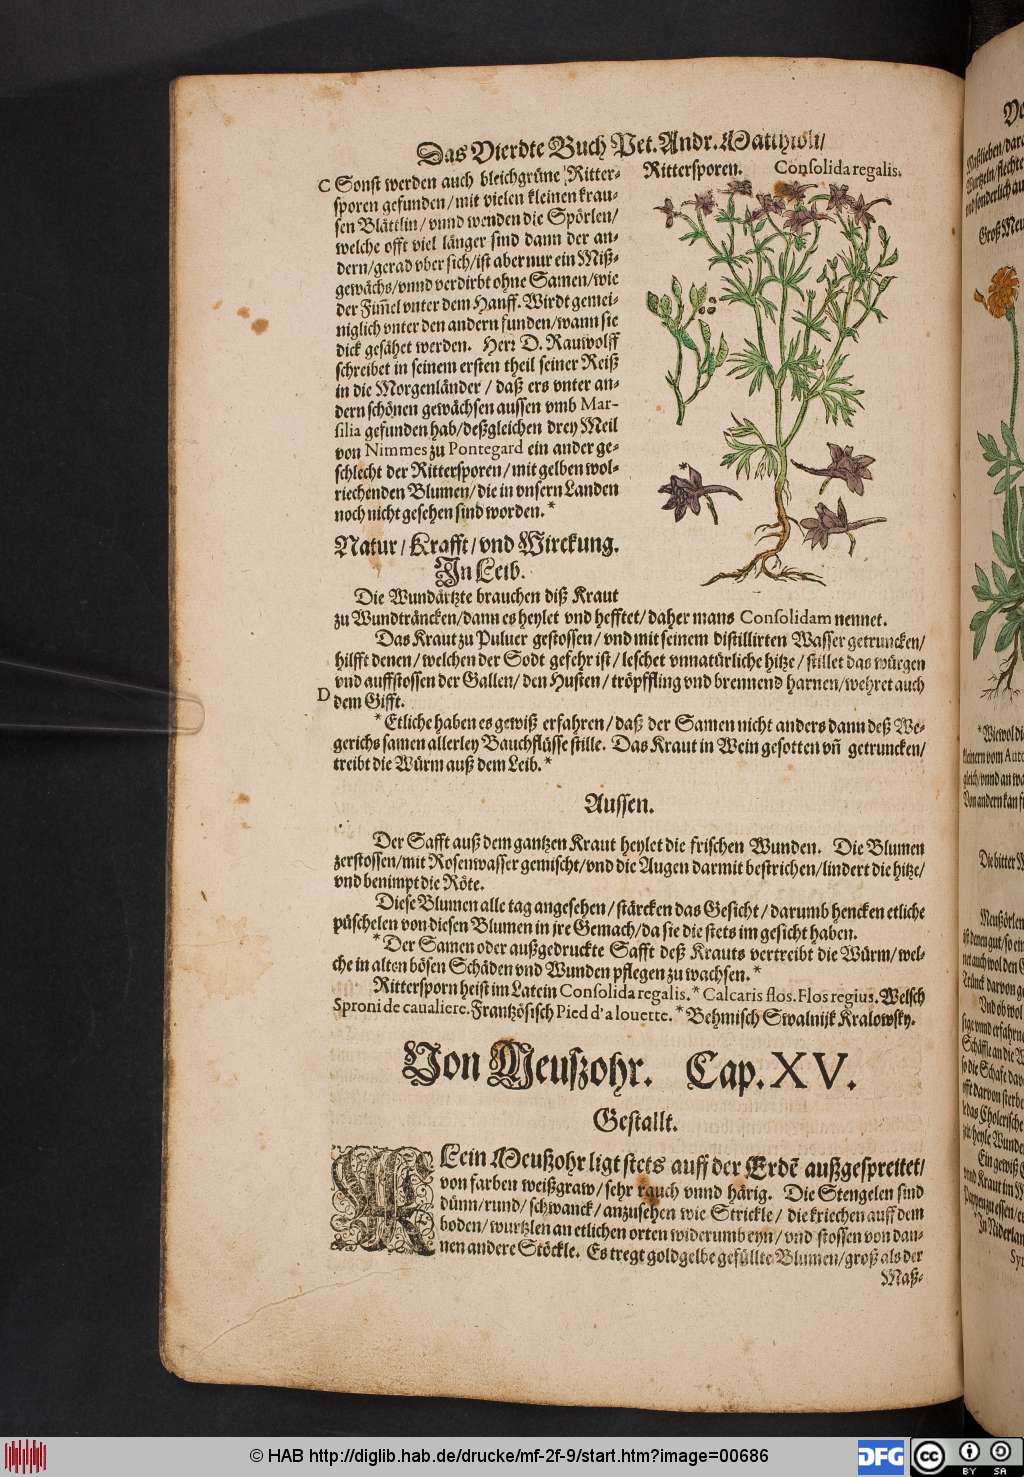 Das Vierdte Buch Pet. Andr. Matthioli/
Rittersporen. Consolida regalis.
C Sonst werden auch bleichgrüne Ritter-
sporen gefunden/mit vielen kleinen krau-
sen Blättlin/ vnnd wenden die Spörlen/
welche offt viel länger sind dann der an-
dern/gerad vber sich/ist aber nur ein Miß-
gewächs/vnnd verdirbt ohne Samen/wie
der Fim̄el vnter dem Hanff. Wirdt gemei-
niglich vnter den andern funden/wann sie
dick gesähet werden. Herr D. Rauwolff
schreibet in seinem ersten theil seiner Reiß
in die Morgenländer / daß ers vnter an-
dern schönen gewächsen aussen vmb Mar-
silia gefunden hab/deßgleichen drey Meil
von Nimmes zu Pontegard ein ander ge-
schlecht der Rittersporen/mit gelben wol-
riechenden Blumen/die in vnsern Landen
noch nicht gesehen sind worden.*
Natur/Krafft/vnd Wirckung.
In Leib.
Die Wundärtzte brauchen diß Kraut
zu Wundträncken/dann es heylet vnd hefftet/daher mans Consolidam nennet.
Das Kraut zu Puluer gestossen/ vnd mit seinem distillirten Wasser getruncken/
hilfft denen/welchen der Sodt gefehr ist/ leschet vnnatürliche hitze/ stillet das würgen
vnd auffstossen der Gallen/ den Husten/ tröpffling vnd brennend harnen/wehret auch
D dem Gifft.
*Etliche haben es gewiß erfahren/ daß der Samen nicht anders dann deß We-
gerichs samen allerley Bauchflüsse stille. Das Kraut in Wein gesotten vn̄ getruncken/
treibt die Würm auß dem Leib.*
Aussen.
Der Safft auß dem gantzen Kraut heylet die frischen Wunden. Die Blumen
zerstossen/mit Rosenwasser gemischt/vnd die Augen darmit bestrichen/lindert die hitze/
vnd benimpt die Röte.
Diese Blumen alle tag angesehen/ stärcken das Gesicht/ darumb hencken etliche
püschelen von diesen Blumen in jre Gemach/da sie die stets im gesicht haben.
*Der Samen oder außgedruckte Safft deß Krauts vertreibt die Würm/ wel-
che in alten bösen Schäden vnd Wunden pflegen zu wachsen.*
Rittersporn heist im Latein Consolida regalis.* Calcaris flos. Flos regius. Welsch
Sproni de caualiere. Frantzösisch Pied d'alouette.* Behmisch Swalnijk Kralowsky.
Von Meuszohr. Cap. XV.
Gestallt.
KLein Meußzohr ligt stets auff der Erdē außgespreitet/
von farben weißgraw/sehr rauch vnnd härig. Die Stengelen sind
dünn/rund/ schwanck/ anzusehen wie Strickle/ die kriechen auff dem
boden/wurtzlen an etlichen orten widerumb eyn/ vnd stossen von dan-
nen andere Stöckle. Es tregt goldgelbe gefüllte Blumen/groß als der
Maß-
© HAB http://diglib.hab.de/drucke/mf-2f-9/start.htm?image=00686
DFG
cc BY SA